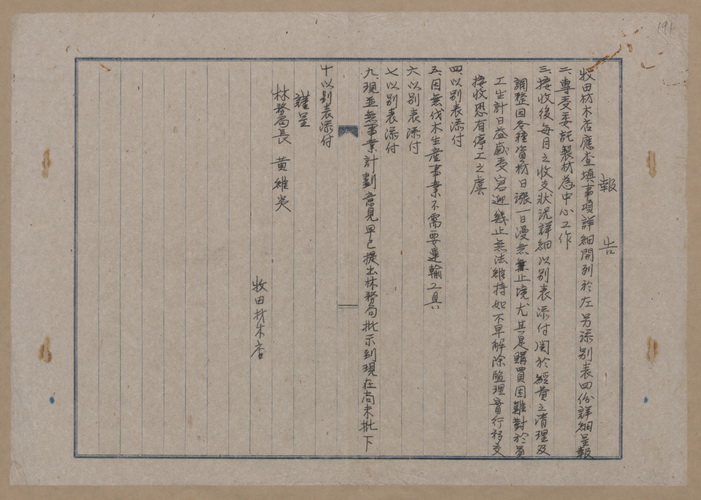 191
報告
牧田材木店應查填事項詳細開列於左另添別表四份詳細呈報
二、專受委託製材為中心工作
三、接收後每月之收支狀況詳細以別表添付関於經費之清理及
調整因各種資材日漲一日漫無止境尤其是購買困難對於員
工生計日益感受窮迫幾止無法維持如不早解除監理實行移交
接收恐有停工之虞
四、以別表添付
五、因無伐木生產事業不需要運輸工具
六、以別表添付
七、以別表添付
九、現並無事業計劃意見早已提出林務局批示到現在尚未批下
十、以別表添付
謹呈
林務局長 黃維炎
牧田材木店